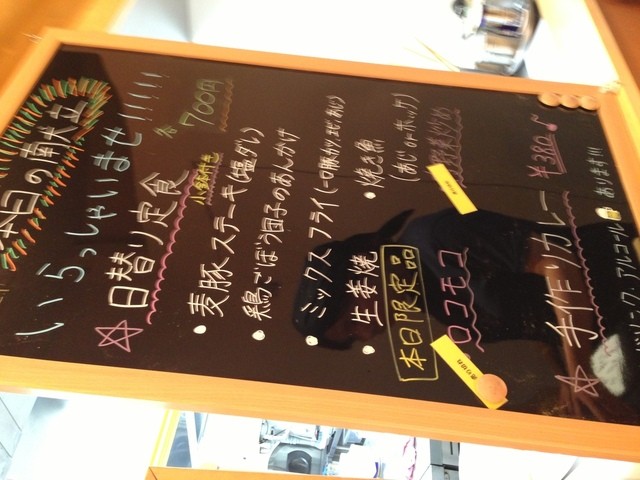 本日の献立
いらっしゃいませ!!!!!
☆日替り定食 各700円
小鉢付き
・麦豚ステーキ(塩ダレ)
・鶏ごぼう団子のあんかけ
・ミックスフライ(一口豚カツ、エビ、あじ)
・生姜焼 ・焼き魚
(あじorホッケ)
本日限定品
ロコモコ
☆手作りカレー ¥380
アルコールあります!!!